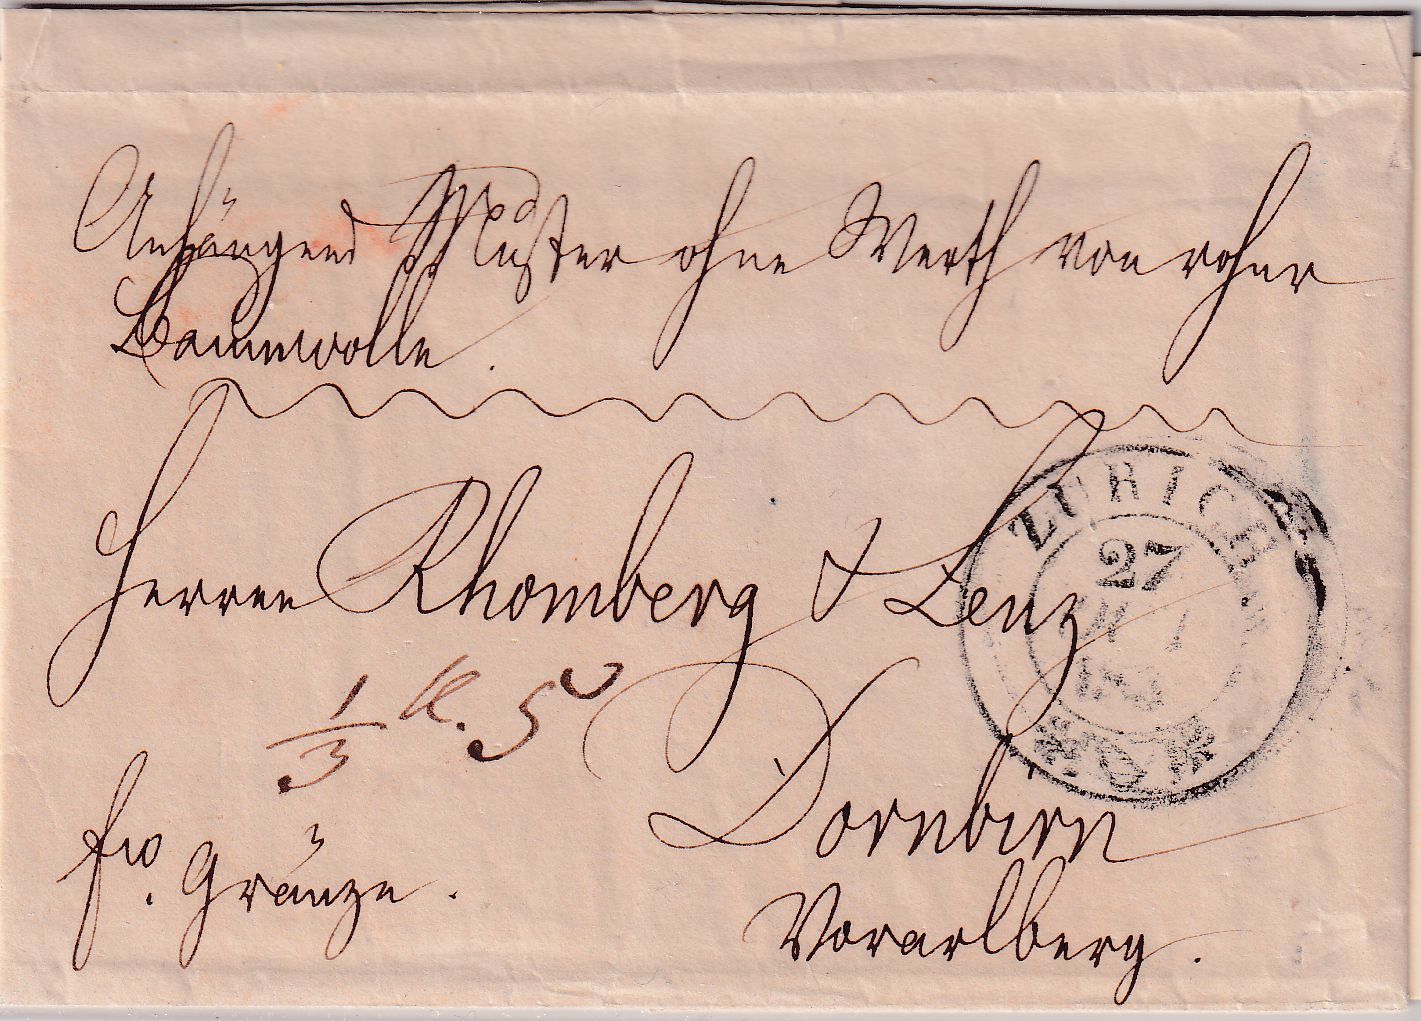 Anhängend Muster ohne Werth von roher
Baumwolle.
Herren Rhomberg & Lenz
ZÜRICH
27
1/3 K. 5
Dornbirn
fro. Gränze.
Vorarlberg.